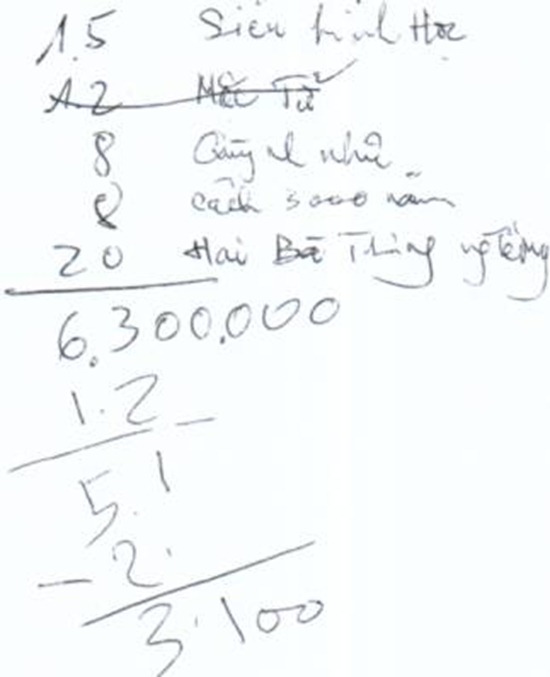 1.5 Siêu hình Học
1.2 Mặc Tử
8
8 cách 3000 năm
20 Hai Bà Trưng
6.300.000
1.2 -
5.1
- 2.
3.100